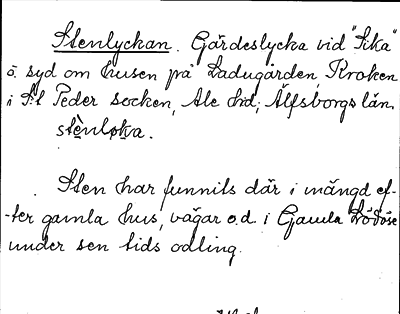 Stenlyckan. Gärdeslycka vid "Sika"
ö. syd om husen på Ladugården, Kroken
i S:t Peder socken, Ale hd, Älfsborgs län.
stènlo̢ka.
Sten har funnits där i mängd ef-
-ter gamla hus, vägar o.d. i Gamla Lödöse
under sen tids odling.